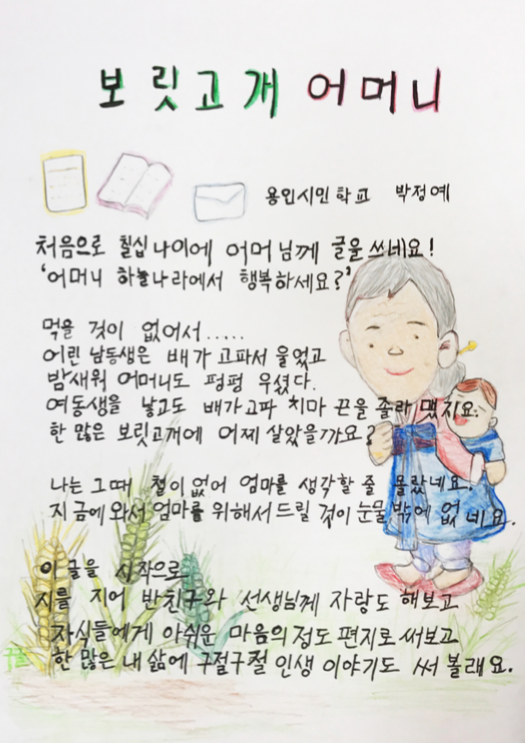 보릿고개 어머니
용인시민학교 박정예
처음으로 칠십 나이에 어머님께 글을 쓰네요!
'어머니 하늘나라에서 행복하세요?'
먹을 것이 없어서.....
어린 남동생은 배가 고파서 울었고
밤새워 어머니도 펑펑 우셨다.
여동생을 낳고도 배가고파 치마 끈을 졸라 맸지요.
한 많은 보릿고개에 어찌 살았을까요?
나는 그때 철이 없어 엄마를 생각할 줄 몰랐네요.
지금에 와서 엄마를 위해서 드릴 것이 눈물 밖에 없네요.
이 글을 시작으로
시를 지어 반친구와 선생님께 자랑도 해보고
자식들에게 아쉬운 마음의 정도 편지로 써보고
한 많은 내 삶에 구절구절 인생 이야기도 써 볼래요.